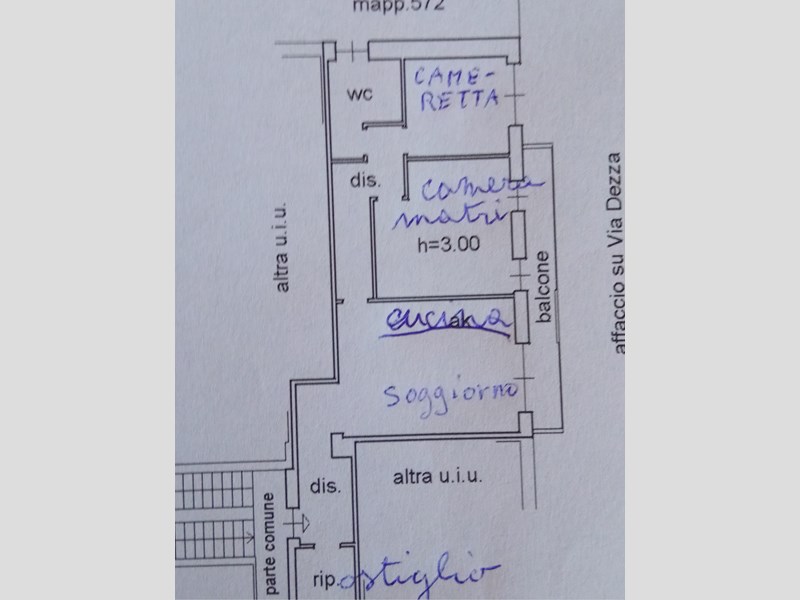 mapp.572
wc
CAME-
RETTA
dis.
camera
matri
h=3.00
altra u.i.u.
balcone
affaccio su Via Dezza
cucina
ak
soggiorno
altra u.i.u.
dis.
parte comune
rip. ostiglio